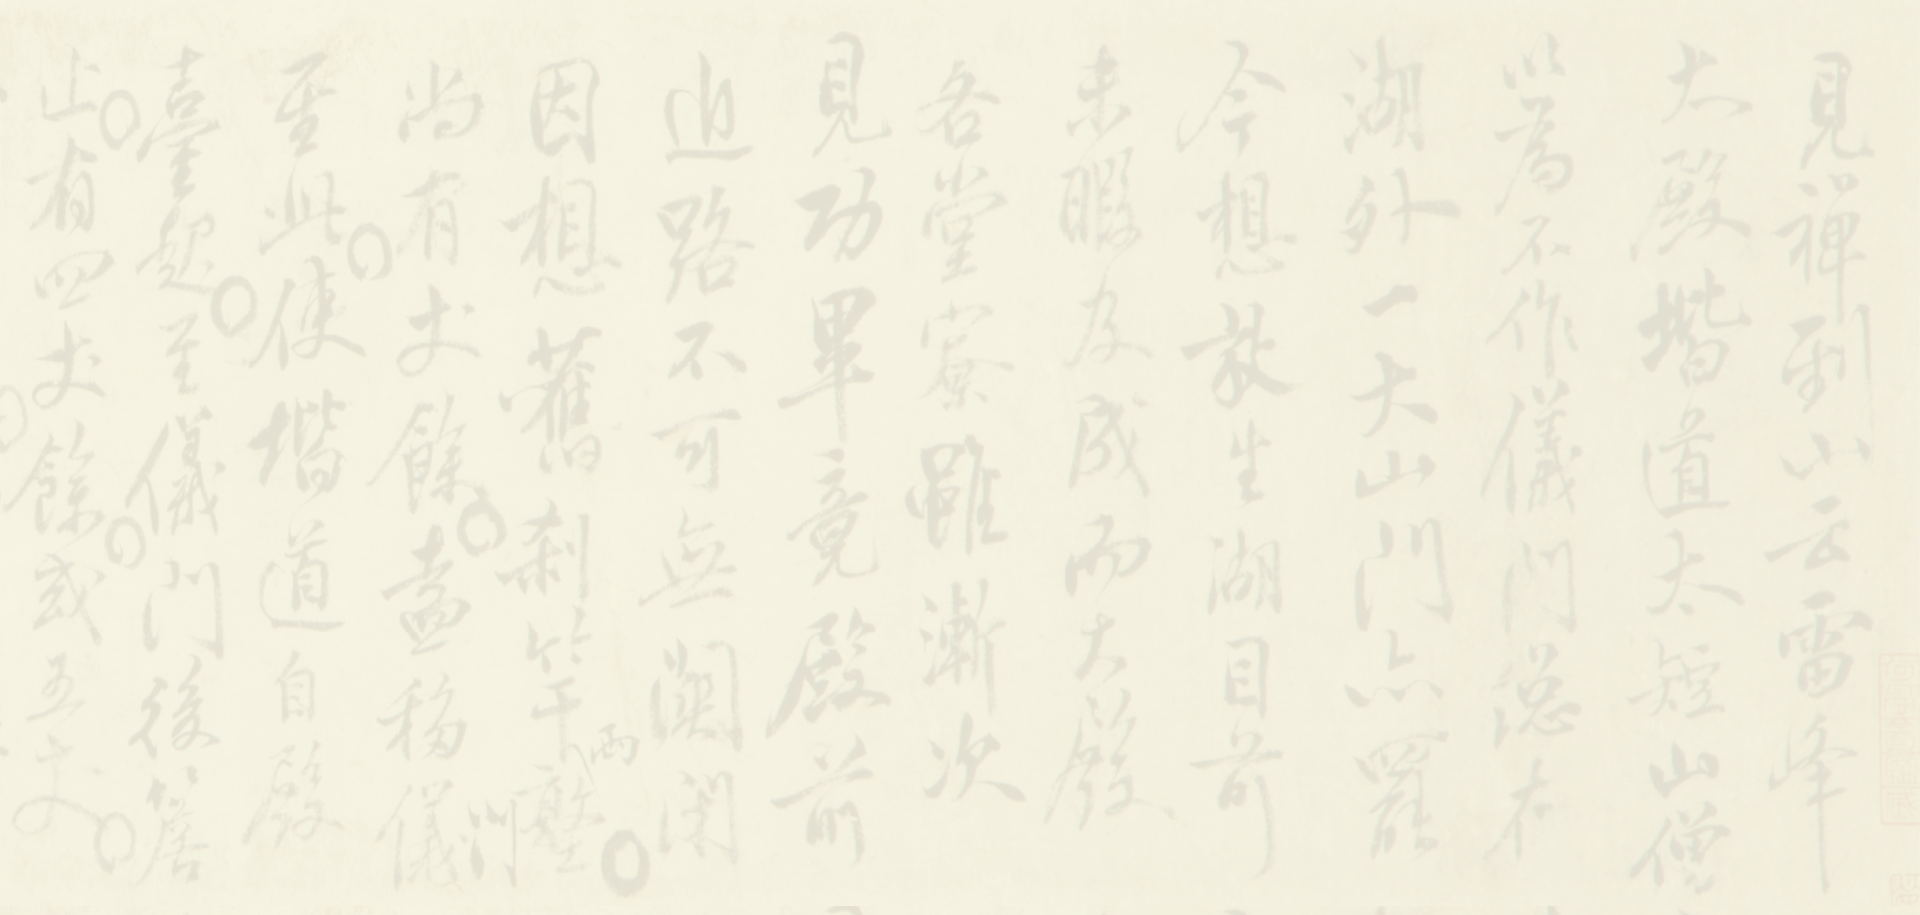 見禪到山云雷峰
大殿堦道太短山僧
以為不作儀門説在
湖外一大山門亦罷
今想放生湖目前
未暇及成而大殿
各堂寮雖漸次
見功畢竟殿前
進路不可無闌閑
因想舊剎竿兩壑
尚有丈餘盍移儀門
至此使堦道自殿
臺起至儀門後簷
止有四丈餘或五丈